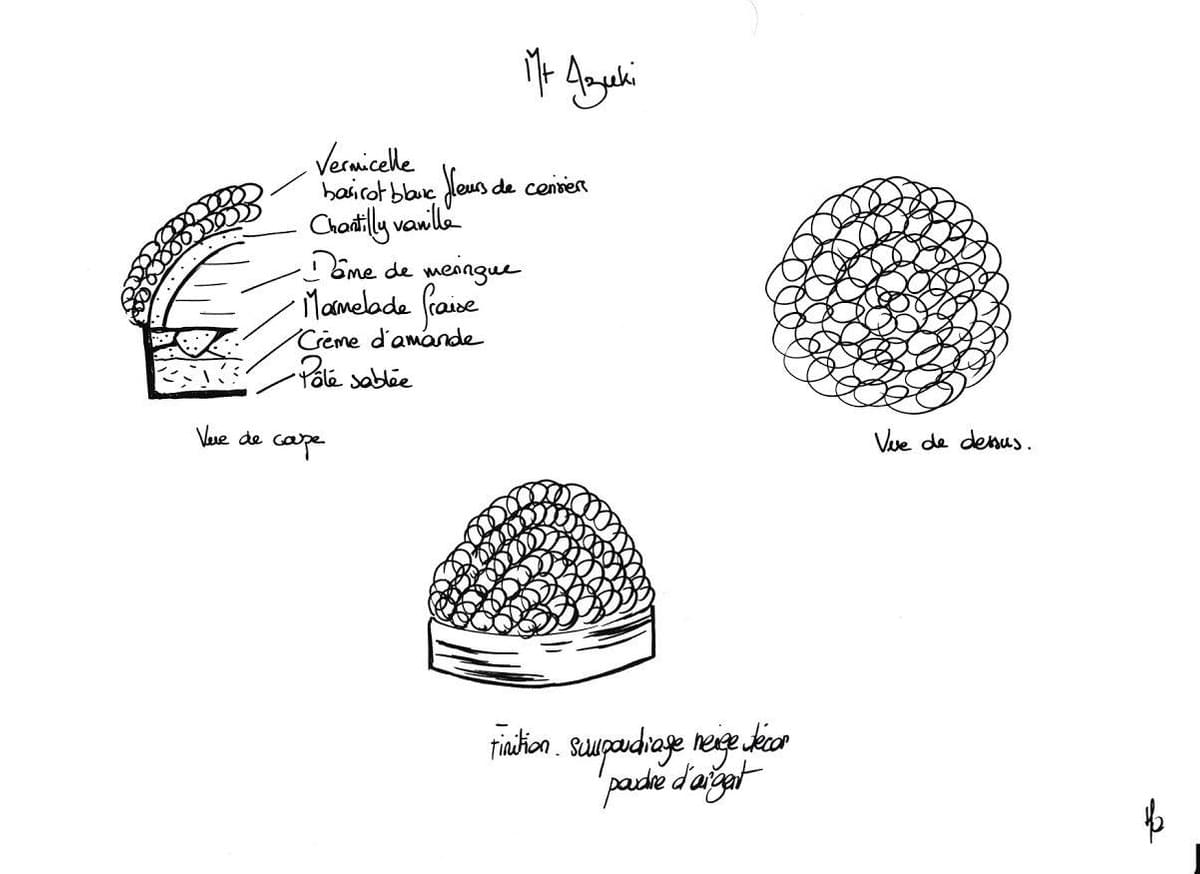 Mt Azuki
Vermicelle
haricot blanc fleurs de cerisier
Chantilly vanille
Dôme de meringue
Marmelade fraise
Crème d'amande
Pâte sablée
Vue de coupe
Vue de dessus.
Finition. saupoudrage neige décor
poudre d'argent